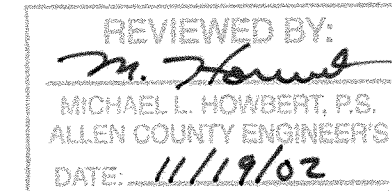 REVIEWED BY:
M.
MICHAEL L. HOWBERT, P.S.
ALLEN COUNTY ENGINEER'S
DATE: 11/19/02